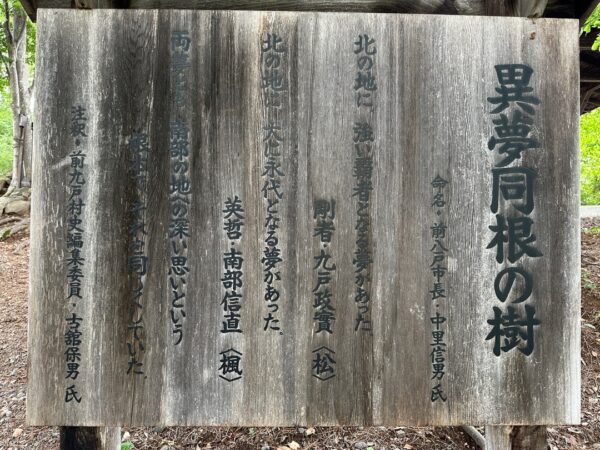 異夢同根の樹
命名・前八戸市長・中里信男 氏
北の地に、強い覇者となる夢があった。
剛者・九戸政實〈松〉
北の地に、大は永代となる夢があった。
英哲・南部信直〈楓〉
両夢とも、南部の地への深い思いという
根を それを同じくしていた。
注釈・前九戸村史編集委員・古舘保男 氏